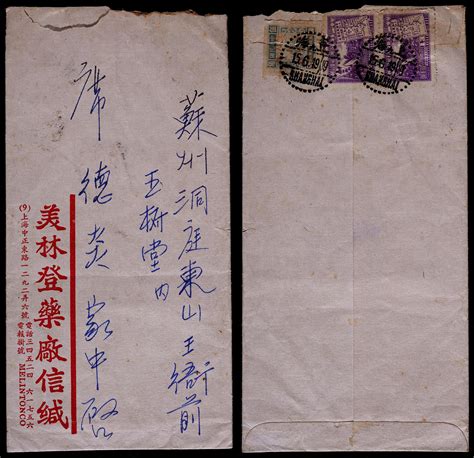 蘇州洞庭東山王衙前
玉樹堂內
席德炎家中啓
美林登藥廠信緘
(9)上海中正東路一二九二弄六號 電話三四五二四 六一七五六
電報掛號 MELINTONCO
上海
上海